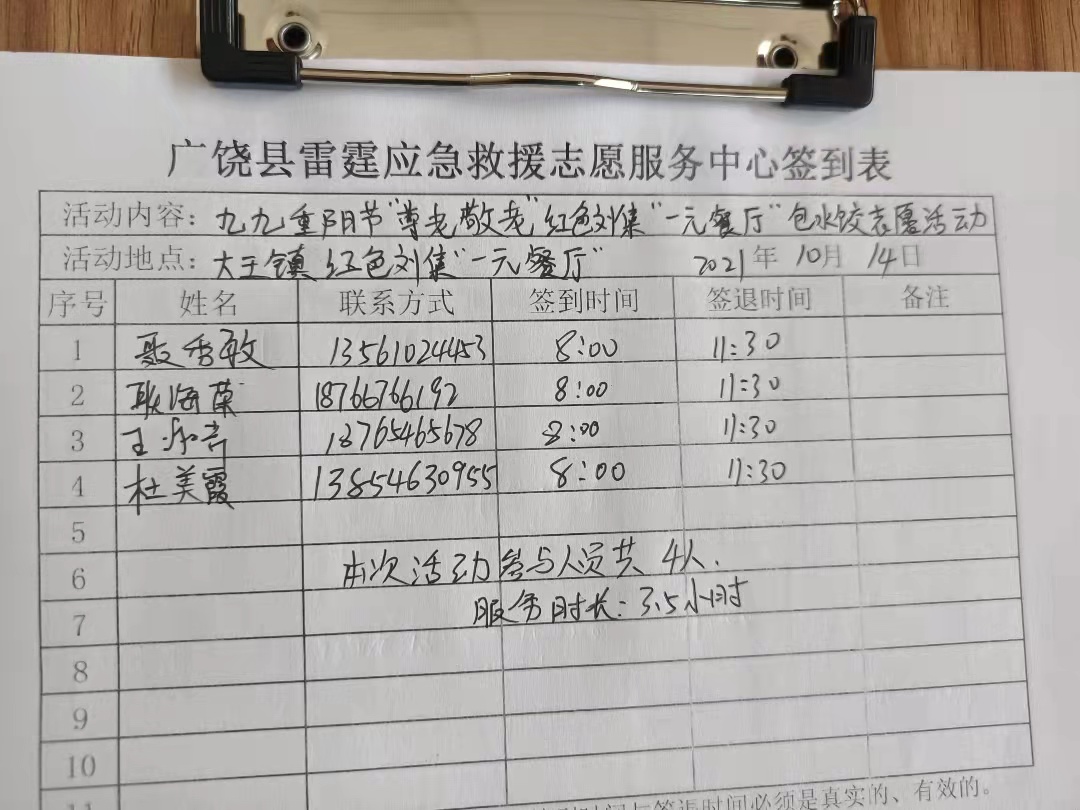 广饶县雷霆应急救援志愿服务中心签到表
活动内容：九九重阳节"尊老敬老"红色刘集"一元餐厅"包水饺志愿活动
活动地点：大王镇 红色刘集"一元餐厅" 2021年 10月 14日
序号 姓名 联系方式 签到时间 签退时间 备注
1 聂秀敏 13561024453 8:00 11:30
2 耿海荣 18766766192 8:00 11:30
3 王 18765465678 8:00 11:30
4 杜美霞 13854630955 8:00 11:30
5
6 本次活动参与人员共 4人.
7 服务时长：3.5小时
8
9
10
11 时间与签退时间必须是真实的、有效的。